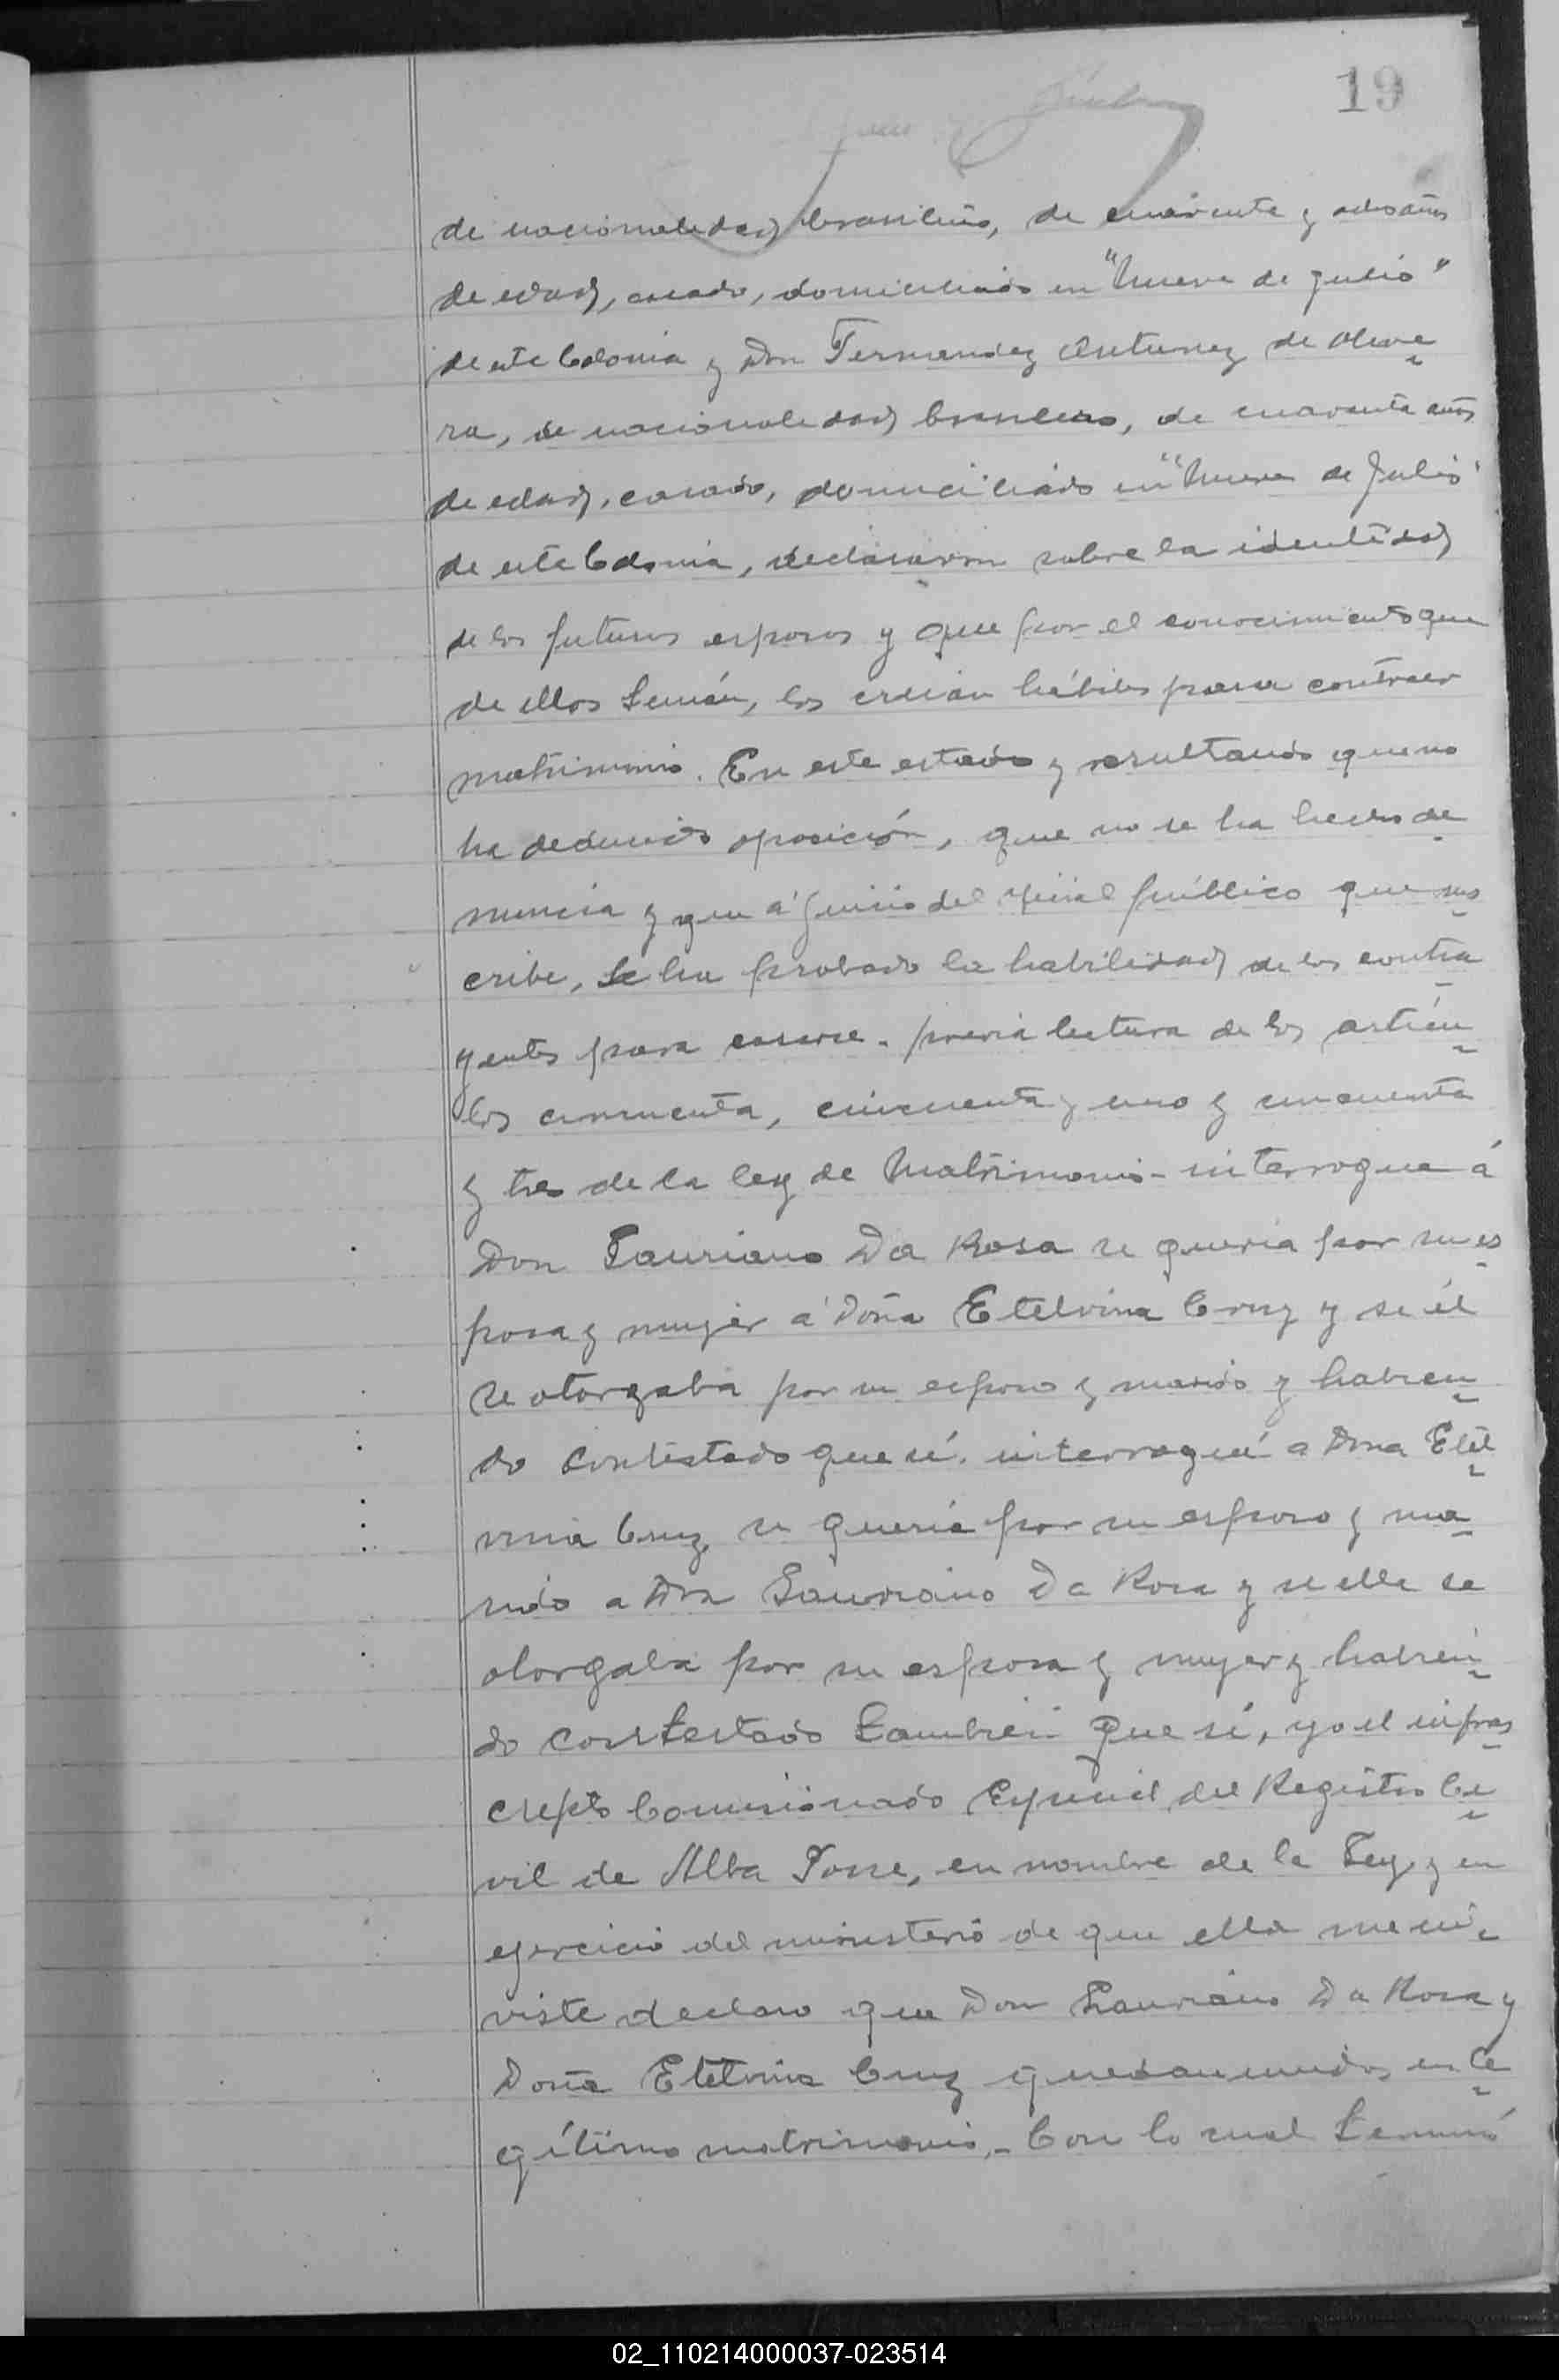 19
de nacionalidad brasileño, de cuarenta y ocho años
de edad, casado, domiciliado en "Nueve de Julio"
de esta Colonia y Don Fernandez Antunez de Olive
ra, de nacionalidad brasilero, de cuarenta años
de edad, casado, domiciliado en "Nueve de Julio"
de esta Colonia, declararon sobre la identidad
de los futuros esposos y que por el conocimiento que
de ellos tenián, los creián hábiles para contraer
matrimonio. En este estado y resultando que no
ha deducido oposición, que no se ha hecho de
nuncia y que á juicio del oficial público que sus
cribe, se ha probado la habilidad de los contra
yentes para casarse. previa lectura de los artícu
los cincuenta, cincuenta y uno y cincuenta
y tres de la ley de Matrimonio - interrogue á
Don Lauriano Da Rosa si queria por su es
posa y mujer á Doña Etelvina Cruz y si él
se otorgaba por su esposo y marido y habien
do contestado que sí. interrogué a Dona Etel
vina Cruz si queria por su esposo y ma
rido a Don Lauriano Da Rosa y si ella se
otorgaba por su esposa y mujer y habien
do contestado tambien que sí, yo el infras
cripto Comisionado Especial del Registro Ci
vil de Alba Posse, en nombre de la Ley y en
ejercicio del ministerio de que ella me in
viste declaro que Don Lauriano Da Rosa y
Doña Etelvina Cruz quedan unidos en le
gítimo matrimonio. - Con lo cual terminó
02_110214000037-023514